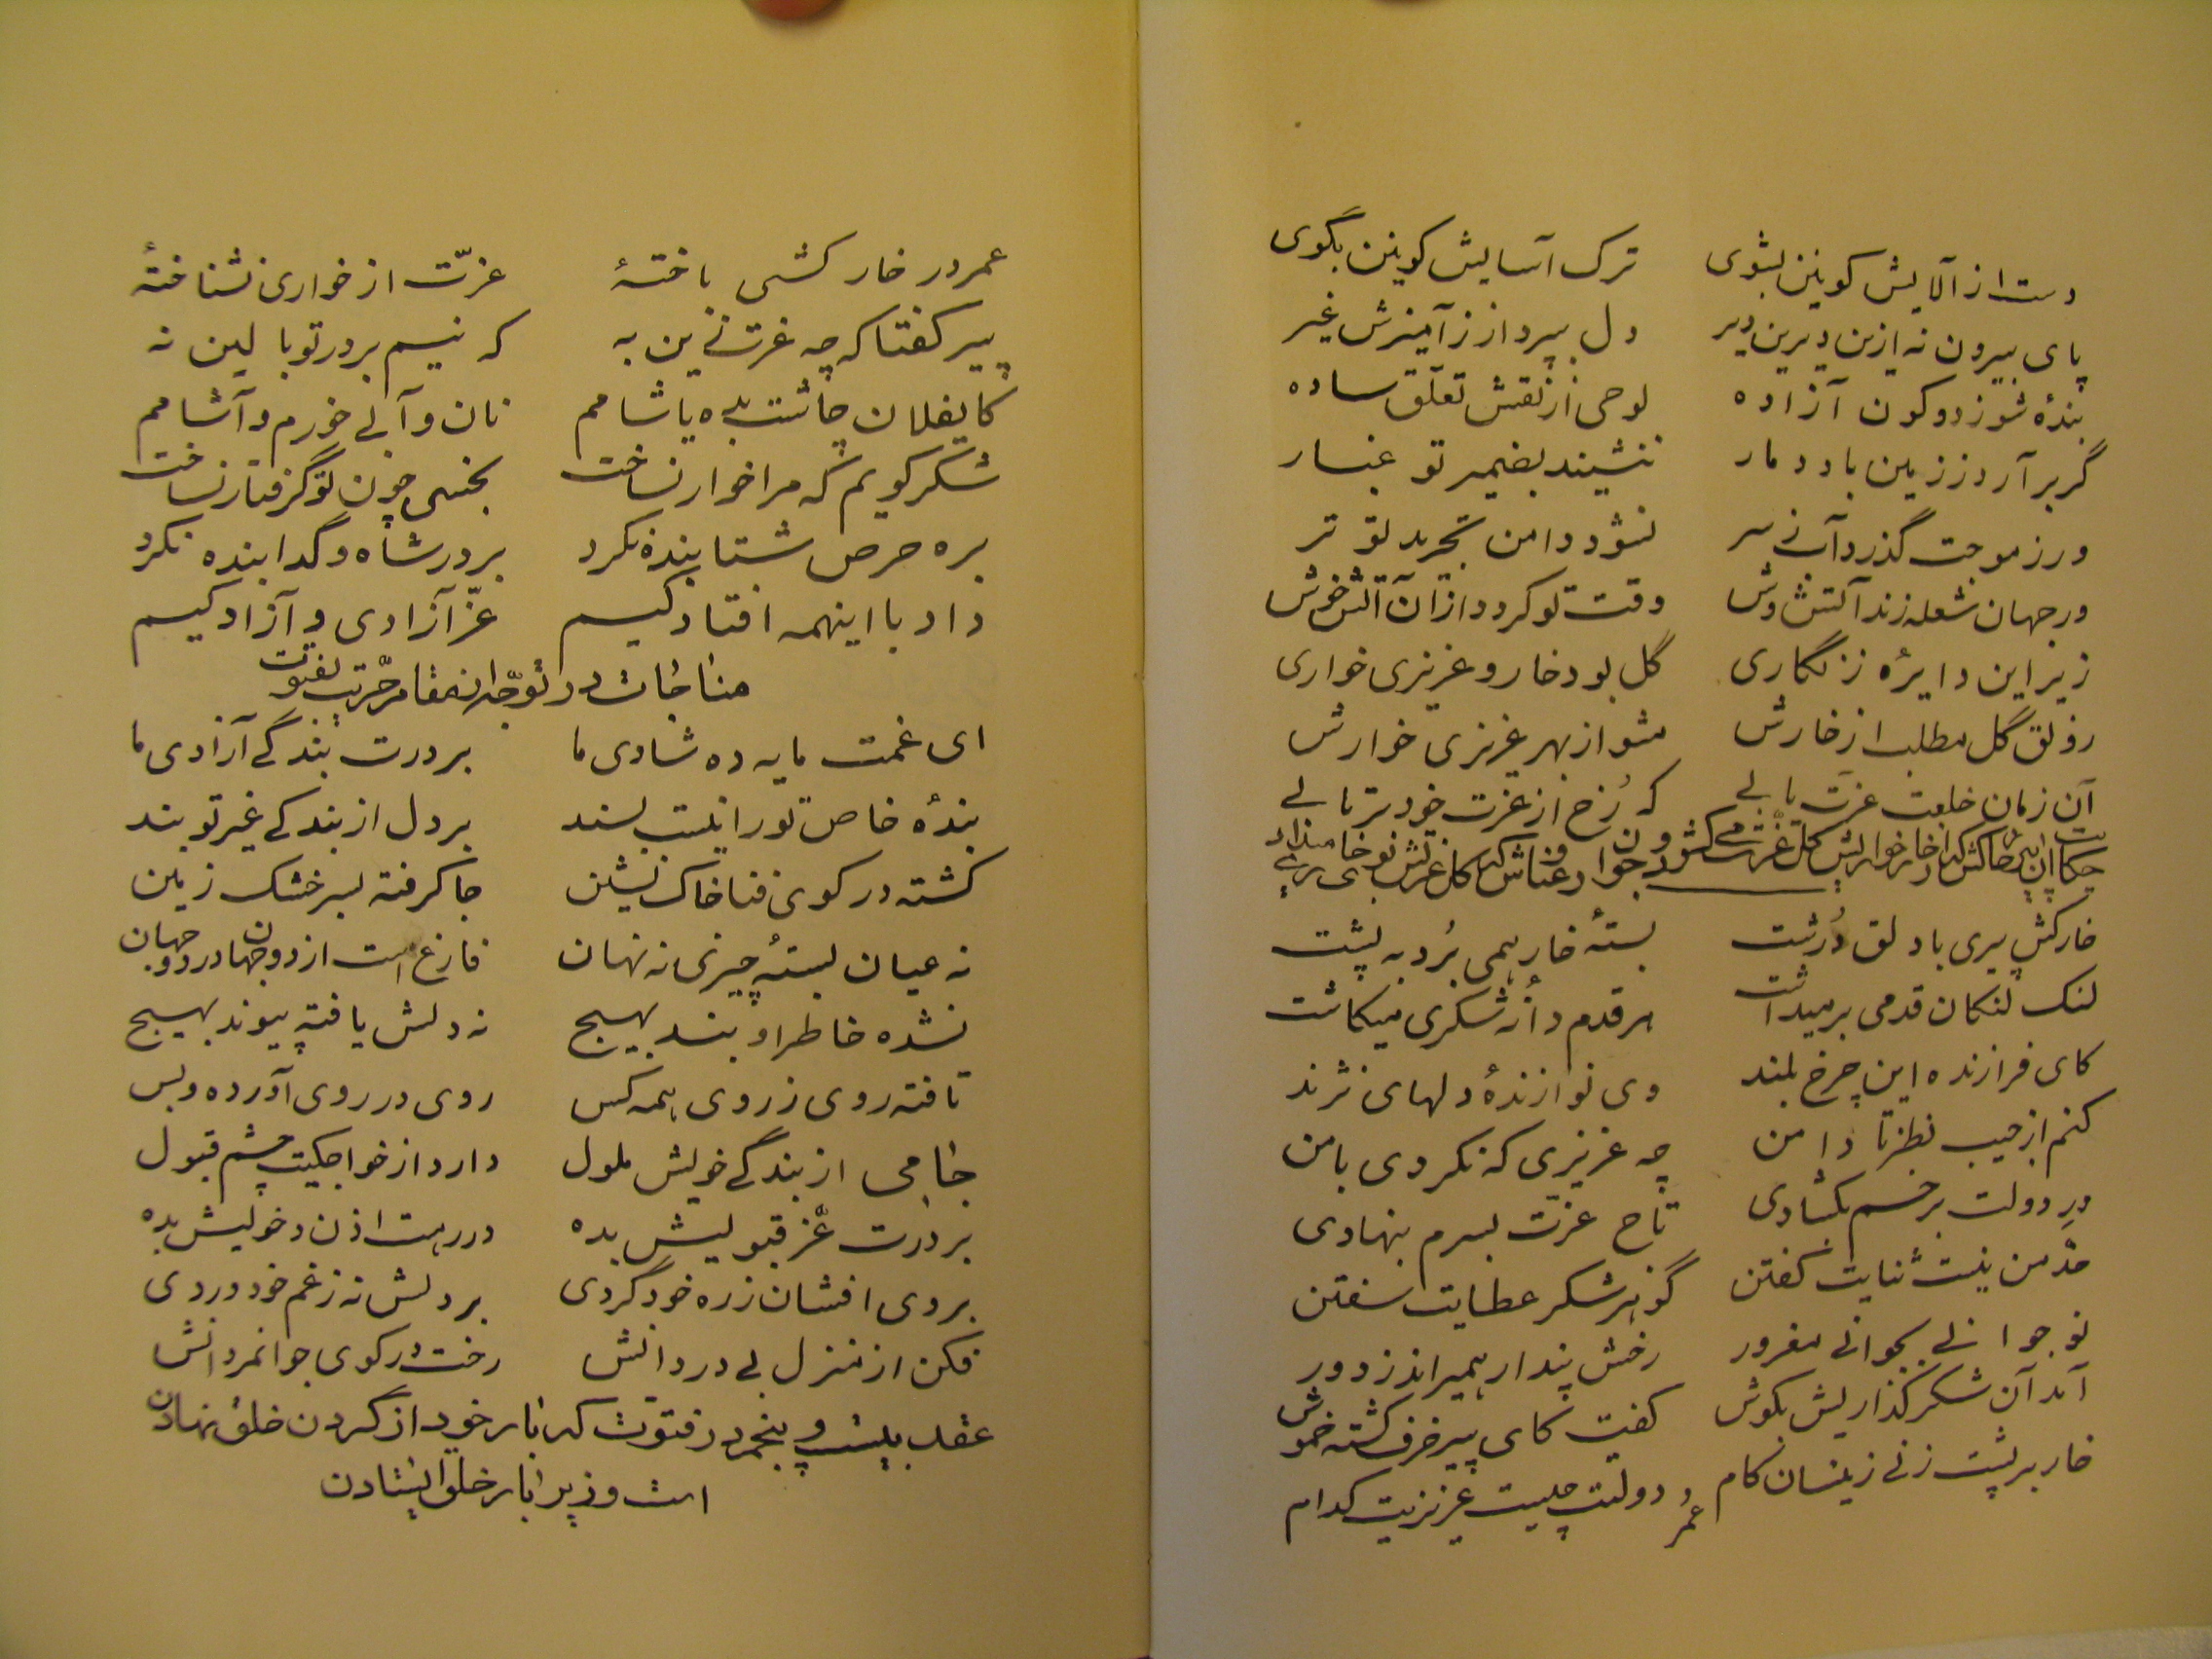 دست از آلایش کونین بشوی ترک آسایش کونین بگوی
پای بیرون نه ازین دیرین دیر دل بپرداز ز آمیزش غیر
بندهٔ شو ز دو کون آزاده لوحی از نقش تعلّق ساده
گر برآرد ز زمین باد دمار ننشیند بضمیر تو غبار
ور ز موجت گذرد آب ز سر نشود دامن تجرید تو تر
ور جهان شعله زند آتش وش وقت تو گردد ازان آتش خوش
زیر این دایرهٔ زنگاری گل بود خار و عزیزی خواری
رونق گل مطلب از خارش مشو از بهر عزیزی خوارش
آن زمان خلعت عزت یابی که رُخ از عزت خود برتابی
حکایت آن پیر خارکش که از خار خواریش گل عزت می کشود و نوجوان
خارکش پیری با دلق دُرشت بستهٔ خار همی بُرد به پشت
لنگ لنگان قدمی برمیداشت هر قدم دانهٔ شکری میکاشت
کای فرازنده این چرخ بلند وی نوازندهٔ دلهای نژند
کنم از جیب نظر تا دامن چه عزیزی که نکردی با من
درِ دولت برخم بگشادی تاج عزت بسرم بنهادی
حدّ من نیست ثنایت گفتن گوهر شکر عطایت سفتن
نوجوانی بجوانی مغرور رخش پندار همیراند ز دور
آمد آن شکرگذاریش بگوش گفت کای پیر خرف گشته خموش
خار بر پشت زنی زینسان گام دولتت چیست عزیزیت کدام
عمر
عمر در خارکشی باختهٔ عزّت از خواری نشناختهٔ
پیر گفتا که چه عزت زین به که نیم بر در تو بالین نه
کای فلان چاشت بده یا شامم نان و آبی خورم و آشامم
شکر گویم که مرا خوار نساخت بخسی چون تو گرفتار نساخت
بره حرص شتابنده نکرد بر در شاه و گدا بنده نکرد
داد با اینهمه افتادگیم عزّ آزادی و آزادگیم
مناجات در توجّه از مقام حرّیت بفتوّت
ای غمت مایه ده شادی ما بر درت بندگی آزادی ما
بندهٔ خاص تو را نیست پسند بر دل از بندگی غیر تو بند
گشته در کوی فنا خاک نشین جا گرفته بسر خشک زمین
نه عیان بستهٔ چیزی نه نهان فارغ است از دو جهان در دو جهان
نشده خاطر او بند بهیچ نه دلش یافته پیوند بهیچ
تافته روی ز روی همه کس روی در روی آورده و بس
جامی از بندگی خویش ملول دارد از خواجگیت چشم قبول
بر درت عزّ قبولیش بده در رهت اذن دخولیش بده
بر وی افشان ز ره خود گردی بر دلش نه ز غم خود دردی
فکن از منزل بی دردانش رخت در کوی جوانمردانش
عقد بیست و پنجم در فتوّت که بار خود از گردن خلق نهادن
است و زیر بار خلق ایستادن